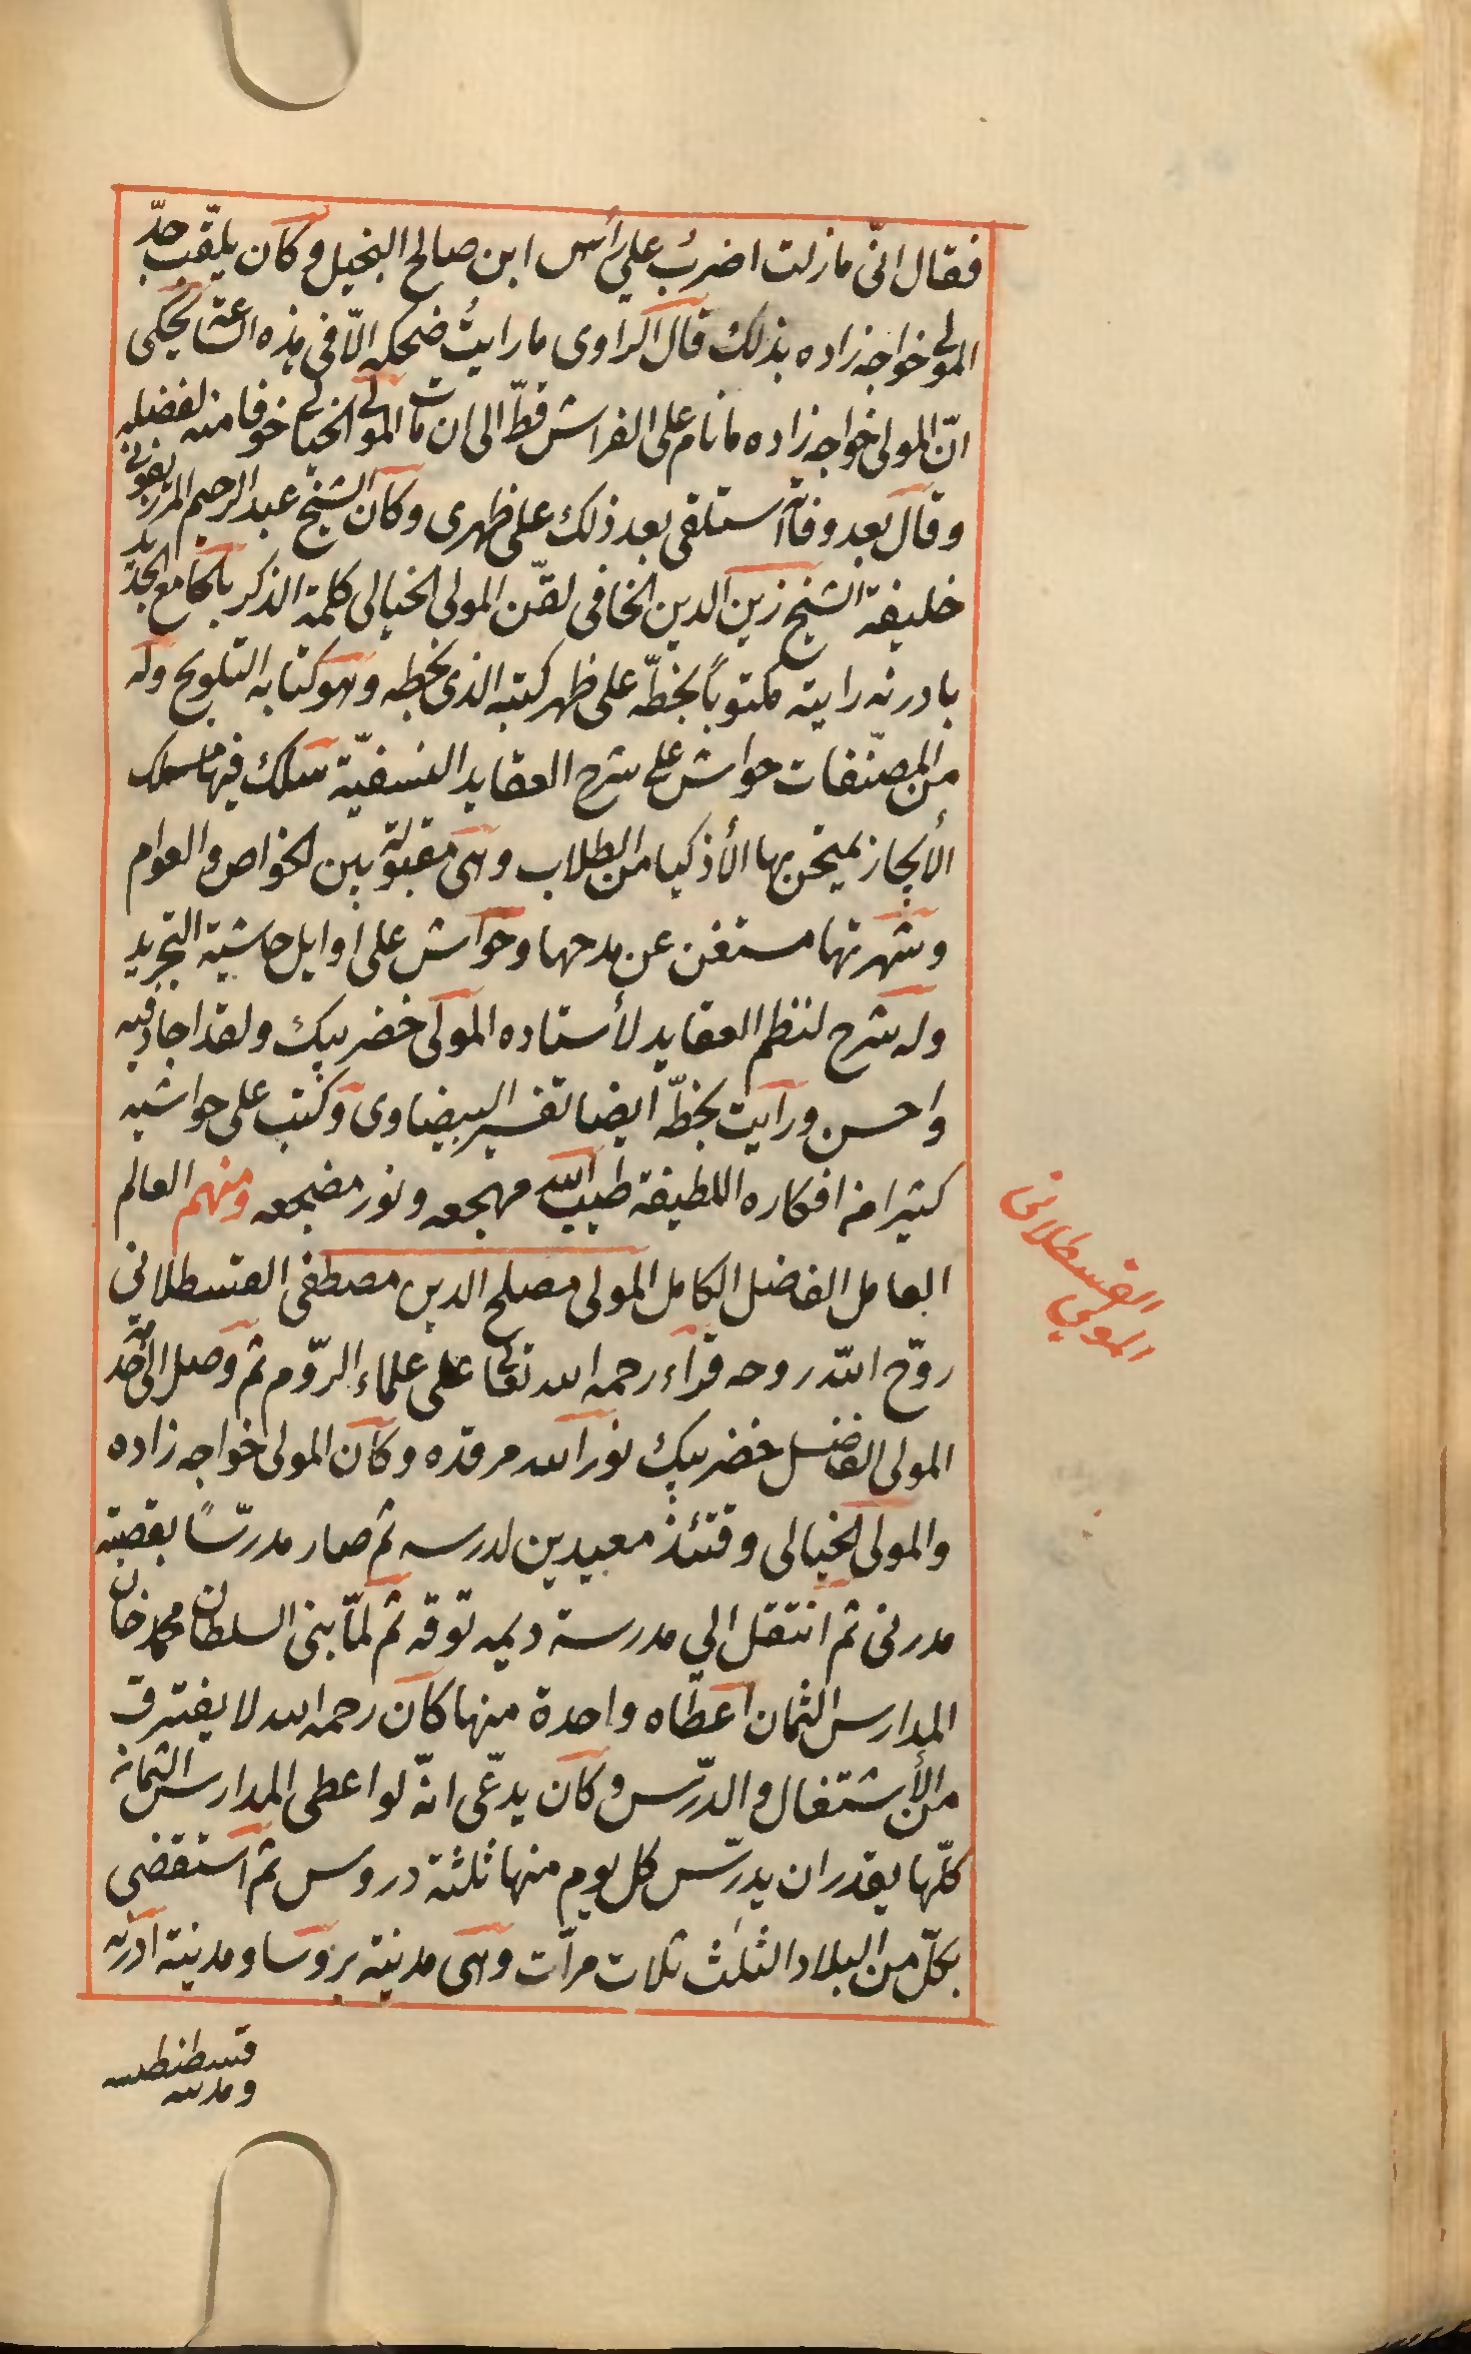 فقال انّى مازلت اضربُ على رأس ابن صالح البخيل وكان يلقّب جدّ
المولى خواجه زاده بذلك قال الراوى ما رايتُ ضحكه الّا فى هذه الساعة يحكى
انّ المولى خواجه زاده ما نام على الفراش قطّ الى ان مات المولى الخيالى خوفا منه لفضله
وقال بعد وفاته استلقى بعد ذلك على ظهرى وكان الشيخ عبد الرحيم المرزيفونى
خليفة الشيخ زين الدين الخافى لقّن المولى الخيالى كلمة الذكر بالجامع الجديد
بادرنه رايته مكتوباً بخطّه على ظهر كتبه الذى بخطه وهو كتابه التلويح وله
من المصنّفات حواش على شرح العقايد النسفيّة سلك فيها مسلك
الأيجاز يمتحن بها الأذكيا من الطلاب وهى مقبولة بين الخواص والعوام
وشهرتها مستغن عن مدحها وحواش على اوايل حاشية التجريد
وله شرح لنظم العقايد لأستاده المولى خضر بيك ولقد اجاد فيه
واحسن ورايت بخطّه ايضا تفسير البيضاوى وكتب على حواشيه
كثيرا من افكاره اللطيفة طيب الله مهجعه ونور مضجعه ومنهم العالم
العامل الفاضل الكامل المولى مصلح الدين مصطفى القسطلانى
روّح الله روحه قرأء رحمه الله تعالى على علماء الرّوم ثم وصل الى خدمة
المولى الفاضل خضر بيك نور الله مرقده وكان المولى خواجه زاده
والمولى الخيالى وقتئذ معيدين لدرسه ثم صار مدرّسًا بقصبة
مدرنى ثم انتقل الي مدرسة ديمه توقه ثم لمّا بنى السلطان محمد خان
المدارس الثمان اعطاه واحدة منها كان رحمه الله لا يفترق
من الأشتغال والدّرس وكان يدّعى انّه لو اعطى المدارس الثمانه
كلّها يقدر ان يدرّس كل يوم منها ثلثة دروس ثم استقضى
بكلّ من البلاد الثلث ثلات مرّات وهى مدنية بروسا ومدنية ادرنه
ومدينه قسطنطنيه
المولى القسطلانى